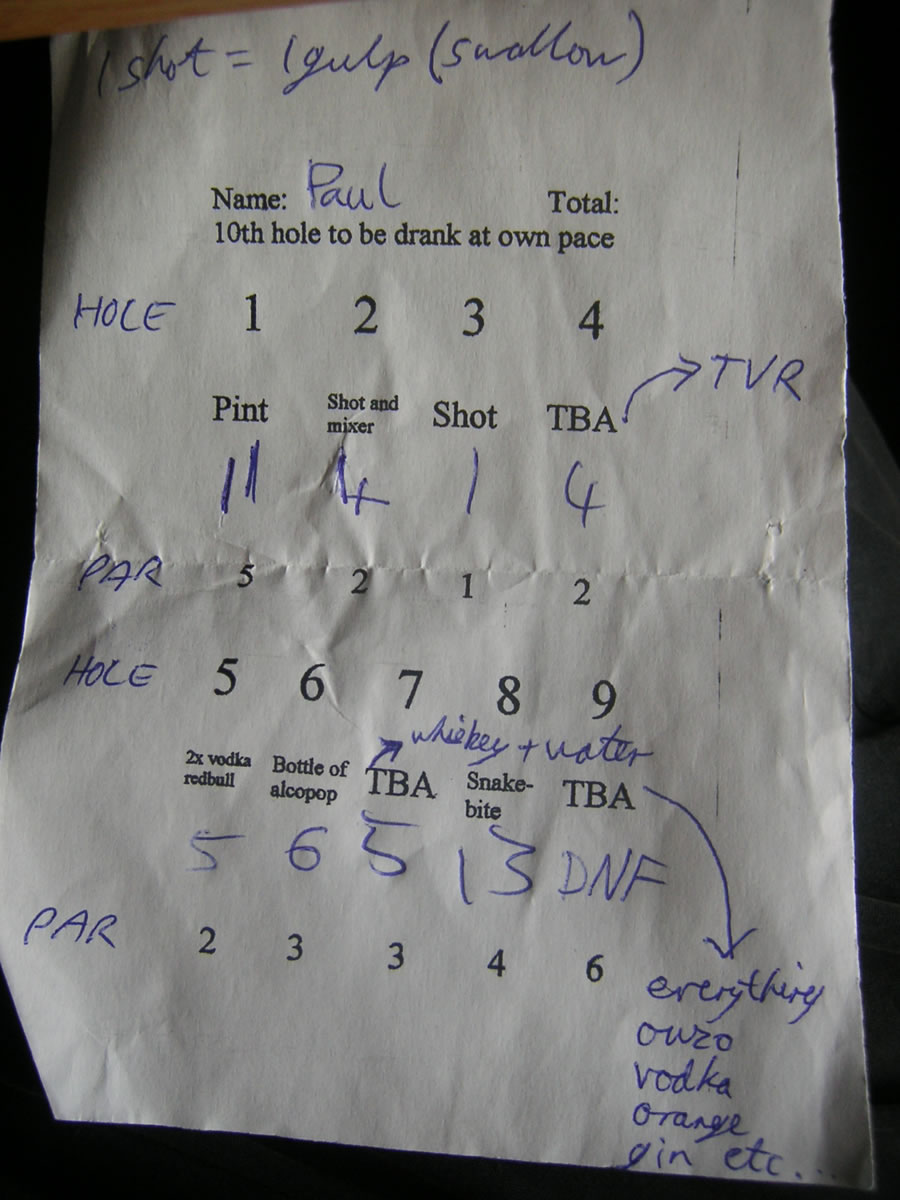 1 shot = 1 gulp (swallow)
Name: Paul Total:
10th hole to be drank at own pace
HOLE 1 2 3 4
TVR
Pint Shot and mixer Shot TBA
11 4 1 4
PAR 5 2 1 2
HOLE 5 6 7 8 9
whiskey + water
2x vodka redbull Bottle of alcopop TBA Snake-bite TBA
5 6 5 13 DNF
PAR 2 3 3 4 6
everything
ouzo
vodka
orange
gin etc...